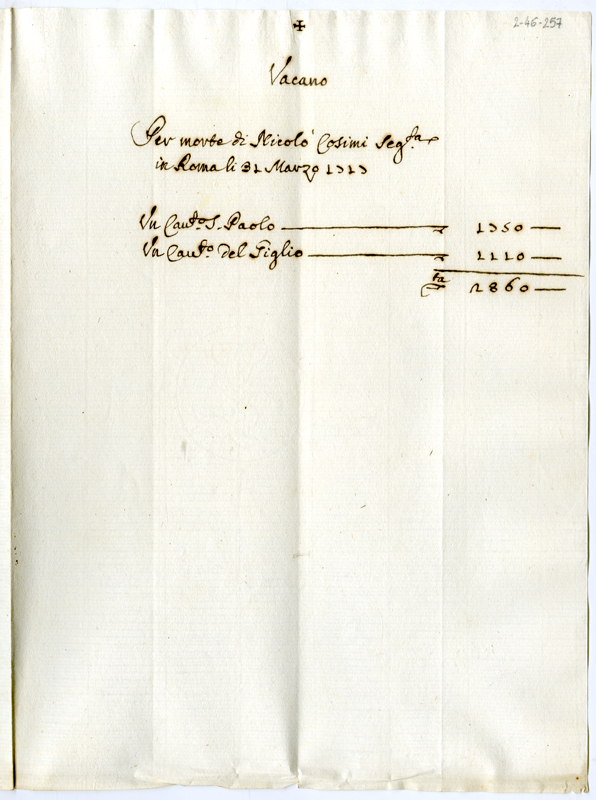 ✠
2-46-257
Vacano
Per morte di Nicolò Cosimi Seg.ta
in Roma li 31 Marzo 1717
Un Cau.to S. Paolo — 1750 —
Un Cau.to del Giglio — 1110 —
2860 —